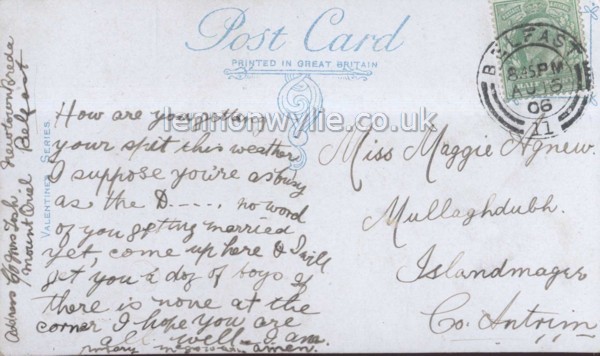 Post Card
PRINTED IN GREAT BRITAIN
VALENTINES SERIES
BELFAST
8.45 PM
AU 15
06
11
lennonwylie.co.uk
How are you getting
your spit this weather
I suppose you're as busy
as the D----, no word
of you getting married
yet, come up here & I will
get you a doz of boys if
there is none at the
corner I hope you are
all well I am.
amen.
Miss Maggie Agnew.
Mullaghdubh.
Islandmagee
Co. Antrim
Address C/o Mrs Tosh
Mount Oriel
Newtownbreda
Belfast